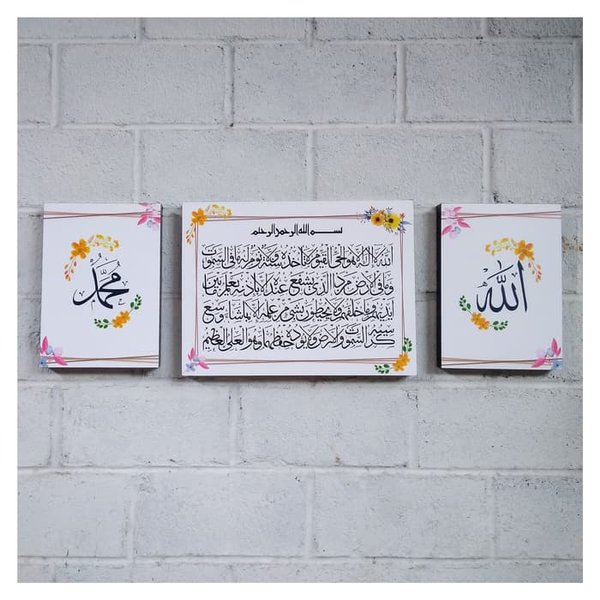 الله
بسم الله الرحمن الرحيم
الله لا اله الا هو الحي القيوم لا تأخذه سنة ولا نوم له ما في السموات
وما في الارض من ذا الذي يشفع عنده الا باذنه يعلم ما بين
ايديهم وما خلفهم ولا يحيطون بشيء من علمه الا بما شاء وسع
كرسيه السموات والارض ولا يؤده حفظهما وهو العلي العظيم
محمد